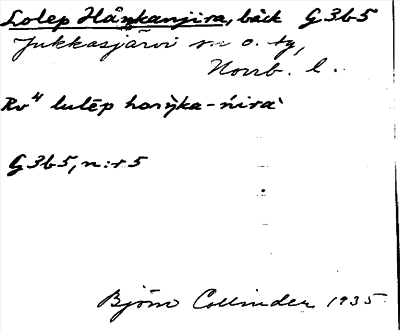 Lolep Håŋkanjira, bäck G3b5
Jukkasjärvi sn o. tg,
Norrb. l.
Rv⁴ lulēp
G3b5, n:r 5
Björn Collinder 1935